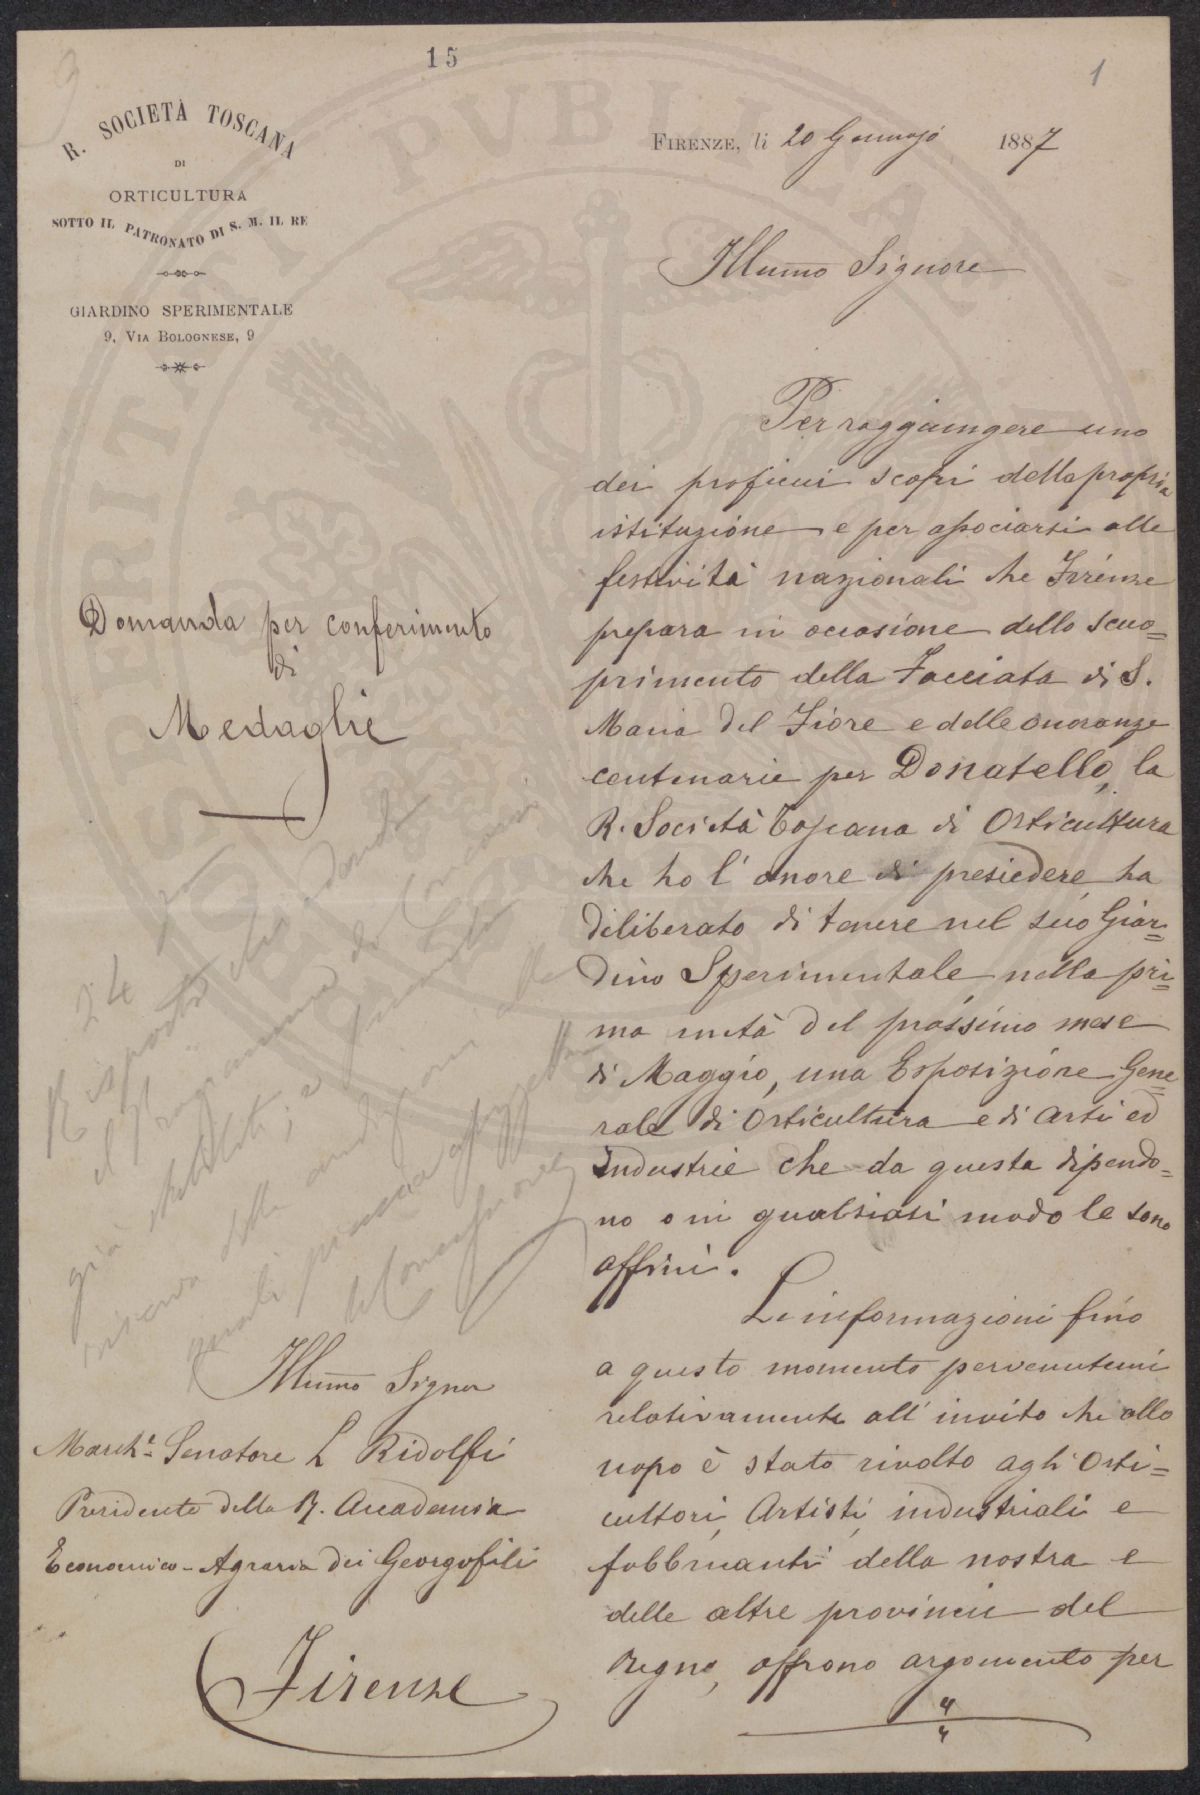 15
1
R. SOCIETÀ TOSCANA
DI
ORTICULTURA
SOTTO IL PATRONATO DI S. M. IL RE
GIARDINO SPERIMENTALE
9, VIA BOLOGNESE, 9
FIRENZE, li 20 Gennajo 1887
Illumo Signore
Per raggiungere uno
dei proficui scopi della propria
istituzione e per associarsi alle
festività nazionali che Firenze
prepara in occasione dello scuo=
primento della Facciata di S.
Maria del Fiore e delle onoranze
centenarie per Donatello, la
R. Società Toscana di Orticultura
che ho l'onore di presiedere, ha
diliberato di tenere nel suo Giar=
dino Sperimentale nella pri=
ma metà del prossimo mese
di Maggio, una Esposizione Gene=
rale di Orticultura e di Arti ed
Industrie che da questa dipendo=
no o in qualsiasi modo le sono
affini.
Le informazioni fino
a questo momento pervenutemi
relativamente all'invito che allo
uopo è stato rivolto agli Orti=
cultori, Artisti, industriali e
fabbricanti della nostra e
delle altre provincie del
Regno, offrono argomento per
Domanda per conferimento
di
Medaglie
24
Risposto chiedendo
il Programma di Concorso
già stabilito; e
riserva delle condizioni alle
quali
Illumo Signor
Marche. Senatore L Ridolfi
Presidente della R. Accademia
Economico-Agraria dei Georgofili
Firenze
PVBLICAE